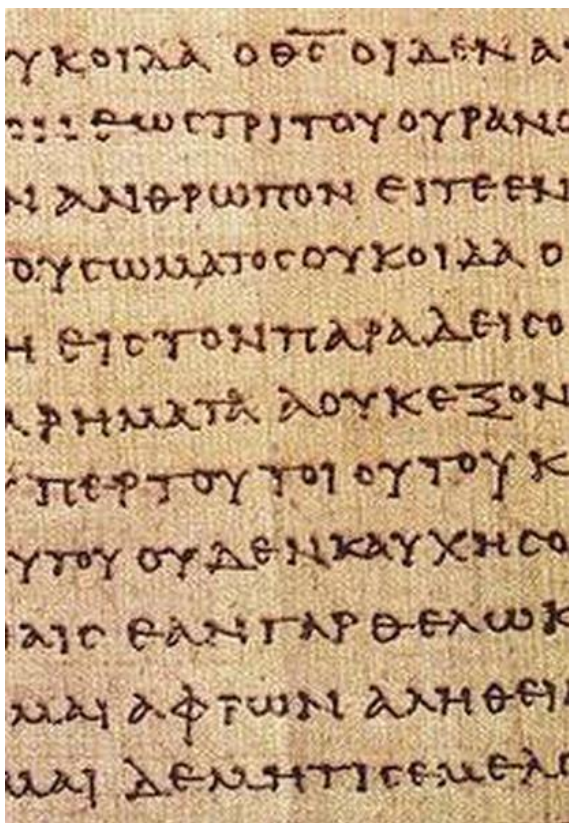 ΥΚ ΟΙΔΑ Ο Θ̅Ϲ̅ ΟΙΔΕΝ Α
ΕΩϹ ΤΡΙΤΟΥ ΟΥΡΑΝΟ
Ν ΑΝΘΡΩΠΟΝ ΕΙΤΕ ΕΝ
ΟΥ ϹΩΜΑΤΟϹ ΟΥΚ ΟΙΔΑ Ο
Η ΕΙϹ ΤΟΝ ΠΑΡΑΔΕΙϹΟ
Α ΡΗΜΑΤΑ Α ΟΥΚ ΕΞΟΝ
ΥΠΕΡ ΤΟΥ ΤΟΙΟΥΤΟΥ Κ
ΥΤΟΥ ΟΥΔΕΝ ΚΑΥΧΗϹΟ
ΑΙϹ ΕΑΝ ΓΑΡ ΘΕΛΩ Κ
ΜΑΙ ΑΦΡΩΝ ΑΛΗΘΕΙ
ΜΑΙ ΔΕ ΜΗ ΤΙϹ ΕΜΕ ΛΟ